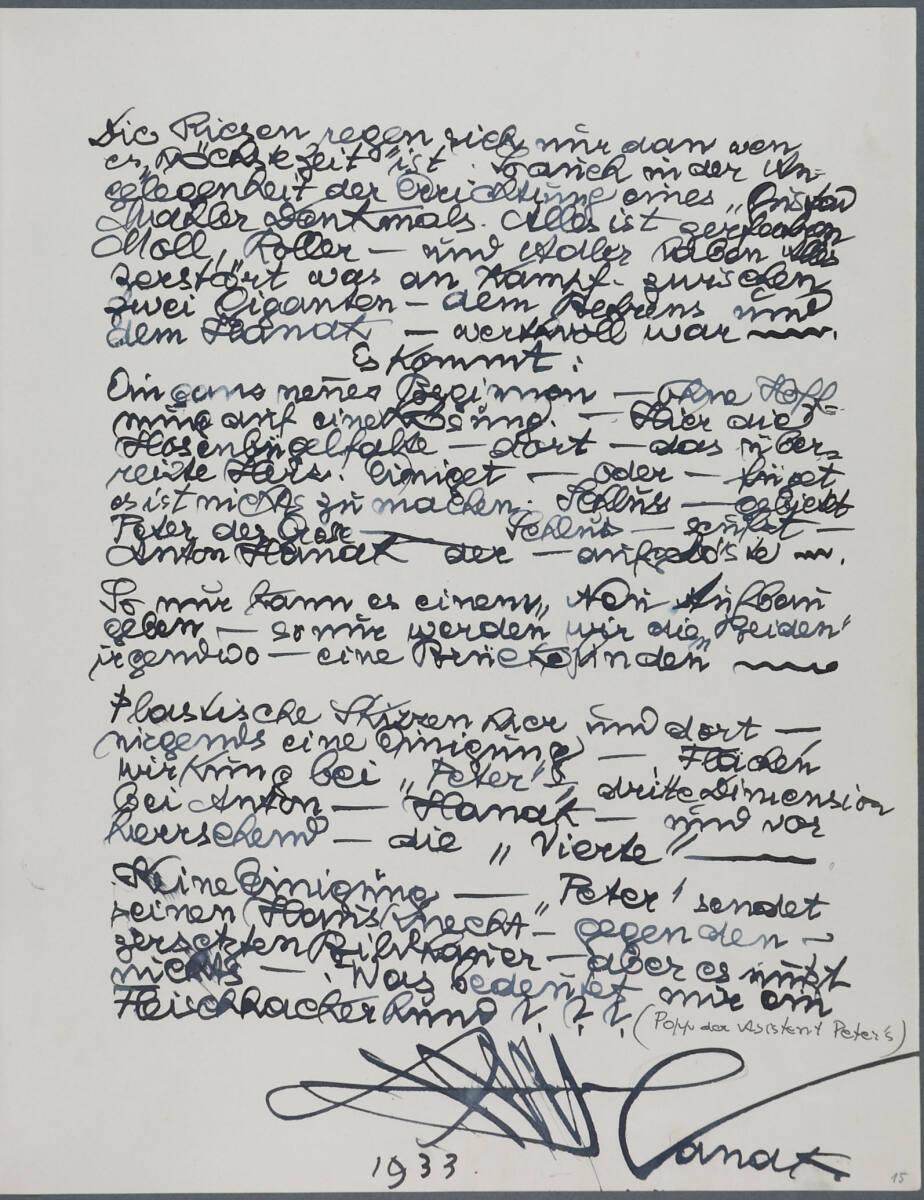 Die Riesen regen sich nur dan wen
es „höchste Zeit" ist. So auch in der An-
gelegenheit der Errichtung eines „Gustav
Mahler Denkmals. Alles ist
Moll, Roller — und Adler haben Alles
zerstört was an Kampf zwischen
zwei Giganten — dem Behrens und
dem Hanak — wertvoll war
Es kommt:
Ein ganz neues Beginnen — Ohne Hoff-
nung auf eine Lösung. — Hier die
Hosenbügelfalte — dort — das über-
reizte Herz. Einiget — oder — füget
es ist nichts zu machen. Schluss — gebietet
Peter der Grose — Schluss — seufzt —
Anton Hanak der — aufgelöste
So nur kann es einem „Neu Aufbau
geben — so nur werden wir die „Beiden"
irgendwo — eine Brücke finden
Plastische Skizzen hier und dort —
nirgends eine Einigung — Flächen
wirkung bei „Peter" — dritte Dimension
bei Anton — Hanak — und vor
herrschend — die „Vierte"
Keine Einigung — „Peter" sendet
seinen Hausknecht — gegen den —
zersetzten Bildhauer — aber es nützt
nichts — Was bedeutet mir ein
Fleischhackerhund ? ? ?
(Popp der Asistent Peter's)
Hanak
1933
15